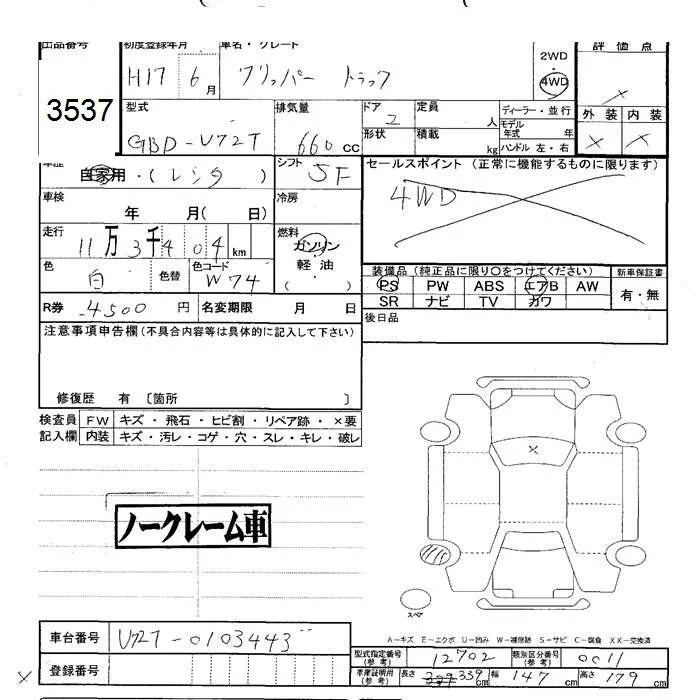 出品番号 初度登録年月 車名・グレード 2WD 評価点
3537 H17 6月 クリッパー トラック 4WD ×
型式 排気量 ドア 定員 ディーラー・並行 外装 内装
GBD-V72T 660cc 2 人 モデル年式 年 × ×
形状 積載 kg ハンドル 左・右
車歴 自家用・(レンタ) シフト 5F セールスポイント (正常に機能するものに限ります)
車検 年 月( 日) 冷房 4WD
走行 11万3千404km 燃料 ガソリン
軽油
( ・ )
色 白 色替 色コード W74
装備品 (純正品に限り○をつけてください) 新車保証書
PS PW ABS エアB AW 有・無
SR ナビ TV カワ
R券 4500円 名変期限 月 日
後日品
注意事項申告欄(不具合内容等は具体的に記入して下さい)
修復歴 有 〔箇所 〕
検査員 FW キズ・飛石・ヒビ割・リペア跡・×要
記入欄 内装 キズ・汚レ・コゲ・穴・スレ・キレ・破レ
×
ノークレーム車
スペア
A-キズ E-エクボ U-凹み W-補修跡 S-サビ C-腐食 XX-交換済
車台番号 U72T-0103443
型式指定番号(参考) 12702 類別区分番号(参考) 0011
× 登録番号
車庫証明用(参考) 長さ 339cm 幅 147cm 高さ 179cm